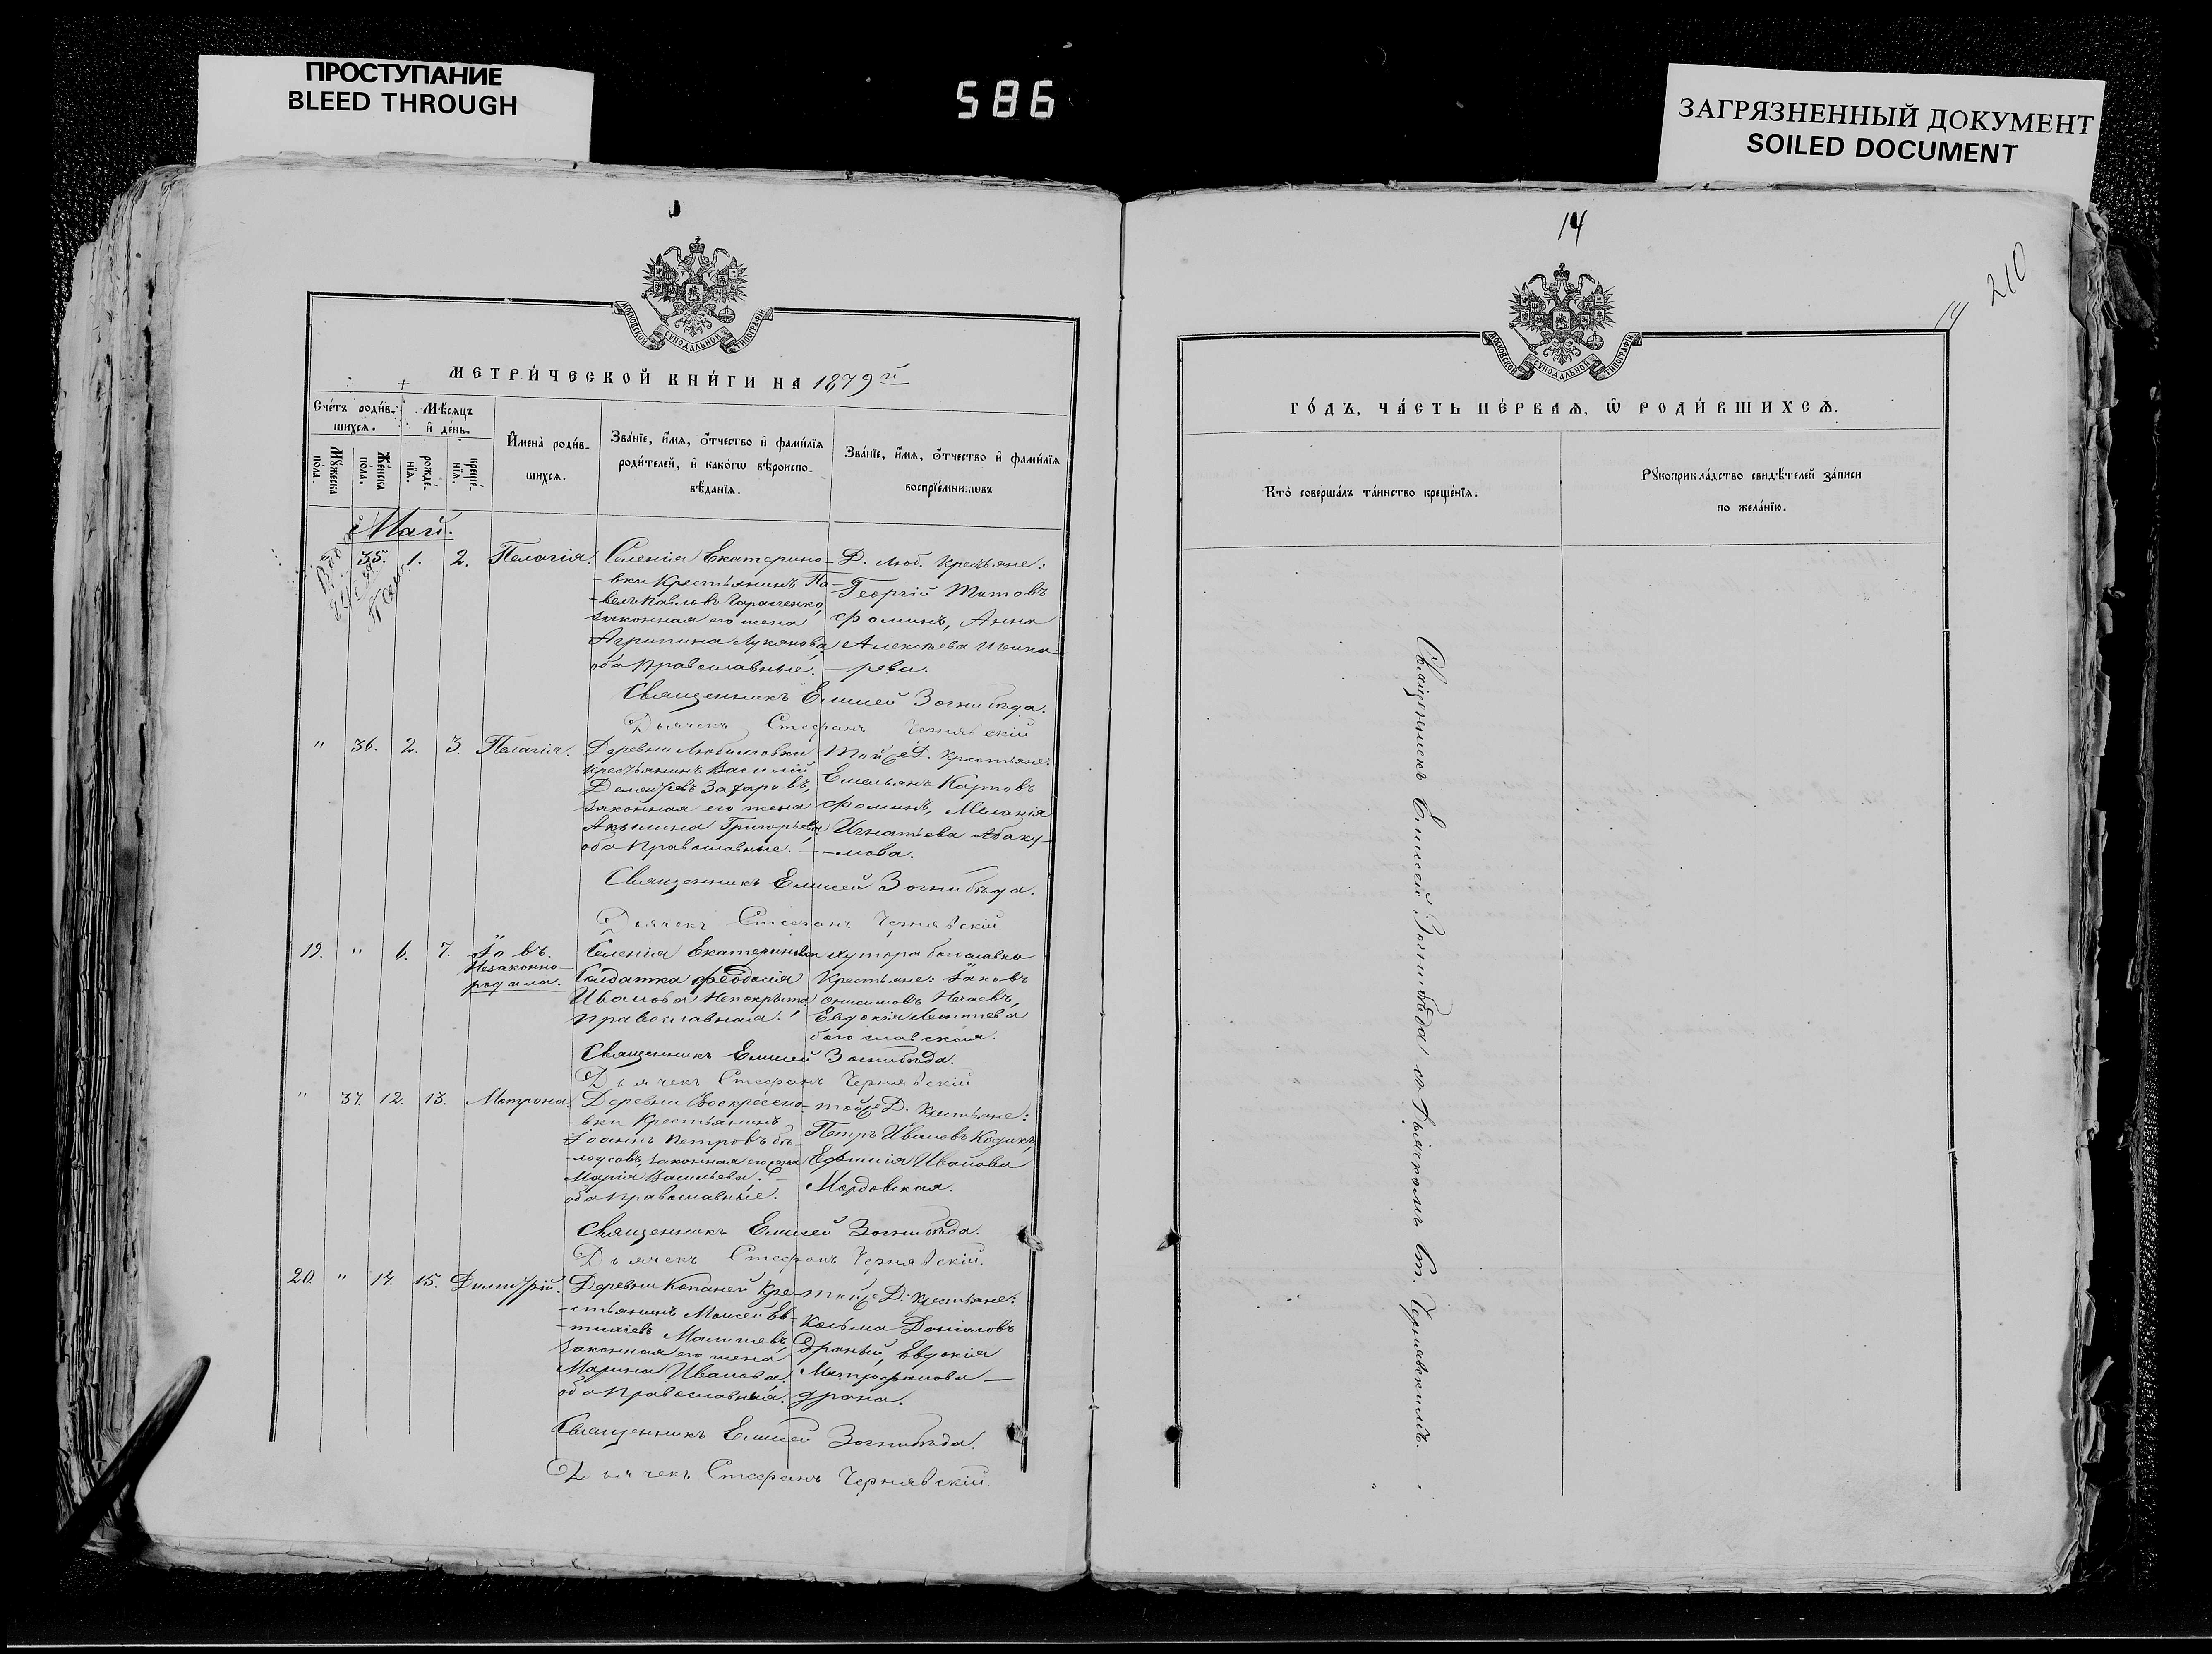 ПРОСТУПАНИЕ
BLEED THROUGH
586
ЗАГРЯЗНЕННЫЙ ДОКУМЕНТ
SOILED DOCUMENT
МОСКОВСКОЙ СУНОДАЛЬНОЙ ТИПОГРАФІИ
МЕТРИ́ЧЕСКОЙ КНИ́ГИ НА 1879й
Сче́тъ роди́в-
шихсѧ.
Мѣ́сѧцъ
и҆ де́нь.
Мꙋ́жеска
по́ла.
Же́нска
по́ла.
рожде́-
нїѧ.
креще́-
нїѧ.
И҆мена̀ роди́в-
шихсѧ.
Зва́нїе, и҆́мѧ, ѻ҆́тчество и҆ фами́лїѧ
роди́телей, и҆ како́гѡ вѣроиспо-
вѣ́данїѧ.
Зва́нїе, и҆́мѧ, ѻ҆́тчество и҆ фами́лїѧ
воспрїе́мникѡвъ
Май.
35. 1. 2. Пелагія.
Селенія Екатерино-
-вки Крестьянинъ Па-
-велъ Павловъ
законная его жена
Агрипина Лукянова,
оба Православные.
Д. Люб. Крестьяне:
Георгій Титовъ
Фоминъ, Анна
Алексѣева
-рева.
Священникъ Елисей Зогнибѣда.
Дьячекъ Стефанъ Чернявскій
" 36. 2. 3. Пелагія.
Деревни Любимовки
Крестьянинъ Василій
Дементьевъ Захаровъ,
законная его жена
Акилина Григорьева,
оба Православные.
той же Д. Крестьяне:
Емельянъ Карповъ
Фоминъ, Меланія
Игнатьева Абаку-
-мова.
Священникъ Елисей Зогнибѣда.
Дьячекъ Стефанъ Чернявскій
19. " 6. 7. Іовъ.
Незаконно-
родила.
Селенія Екатериновки
Солдатка Феодосія
Иванова Непокрыта,
православная.
хутора Богославки
Крестьяне: Іаковъ
Онисимовъ Нечаевъ,
Евдокія Леонтьева
Богославская.
Священникъ Елисей Зогнибѣда.
Дьячекъ Стефанъ Чернявскій
" 37. 12. 13. Матрона.
Деревни Воскресено-
-вки Крестьянинъ
Іоаннъ Петровъ Бѣ-
-лоусовъ, законная его жена
Марія Васильева.
оба православные.
той же Д. Крестьяне:
Петръ Ивановъ
Евфимія Иванова
Мордовская.
Священникъ Елисей Зогнибѣда.
Дьячекъ Стефанъ Чернявскій.
20. " 14. 15. Димитрій.
Деревни Копаней Кре-
-стьянинъ Моисей Ев-
-тихіевъ
законная его жена
Марина Иванова.
оба Православныя.
той же Д. Крестьяне:
Косьма Даніиловъ
Драный, Евдокія
Митрофанова
Драна.
Священникъ Елисей Зогнибѣда.
Дьячекъ Стефанъ Чернявскій.
14
210
14
МОСКОВСКОЙ СУНОДАЛЬНОЙ ТИПОГРАФІИ
ГО́ДЪ, ЧА́СТЬ ПЕ́РВАѦ, Ѡ҆ РОДИ́ВШИХСѦ.
Кто̀ соверша́лъ та́инство креще́нїѧ.
Рꙋкоприкла́дство свидѣ́телей за́писи
по жела́нїю.
Священникъ Елисей Зогнибѣда съ Дьячкомъ Ст. Чернявскимъ.